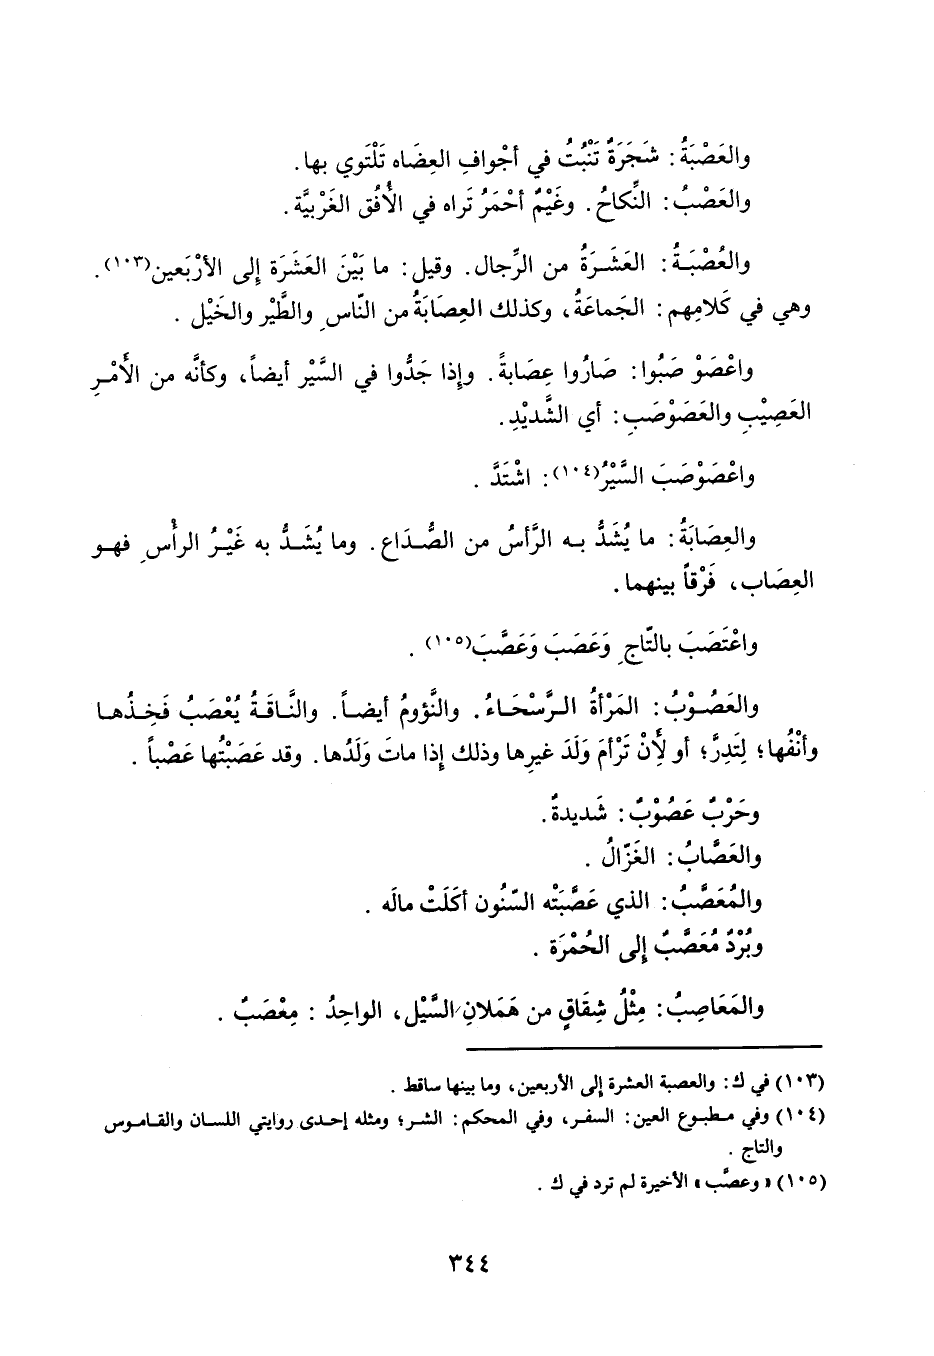 والعَصْبَةُ: شَجَرَةٌ تَنْبُتُ في أجْوافِ العِضَاه تَلْتَوي بها.
والعَصْبُ: النِّكاحُ. وغَيْمٌ أحْمَرُ تَراه في الأُفُق الغَرْبيَّة.
والعُصْبَةُ: العَشَرَةُ من الرِّجال. وقيل: ما بَيْنَ العَشَرَة إلى الأرْبَعين(١٠٣).
وهي في كَلامِهم: الجَماعَةُ، وكذلك العِصَابَةُ من النّاسِ والطَّيْر والخَيْل.
واعْصَوْصَبُوا: صَارُوا عِصَابةً. وإذا جَدُّوا في السَّيْر أيضاً، وكأنَّه من الأَمْرِ
العَصِيْبِ والعَصَوْصَبِ: أي الشَّديْدِ.
واعْصَوْصَبَ السَّيْرُ(١٠٤): اشْتَدَّ.
والعِصَابَةُ: ما يُشَدُّ به الرَّأسُ من الصُّدَاع. وما يُشَدُّ به غَيْرُ الرأْسِ فهو
العِصَاب، فَرْقاً بينهما.
واعْتَصَبَ بالتّاجِ وَعَصَبَ وَعَصَّبَ(١٠٥).
والعَصُوْبُ: المَرْأةُ الرَّسْحَاءُ. والنَّؤومُ أيضاً. والنَّاقَةُ يُعْصَبُ فَخِذُها
وأنْفُها؛ لِتَدِرَّ؛ أو لأِنْ تَرْأمَ وَلَدَ غيرِها وذلك إذا ماتَ وَلَدُها. وقد عَصَبْتُها عَصْباً.
وحَرْبٌ عَصُوْبٌ: شَديدةٌ.
والعَصَّابُ: الغَزّالُ.
والمُعَصَّبُ: الذي عَصَّبَتْه السّنُون أكَلَتْ مالَه.
وبُرْدٌ مُعَصَّبٌ إلى الحُمْرَة.
والمَعَاصِبُ: مِثْلُ شِقَاقٍ من هَمَلانِ السَّيْل، الواحِدُ: مِعْصَبٌ.
(١٠٣) في ك: والعصبة العشرة إلى الأربعين، وما بينها ساقط.
(١٠٤) وفي مطبوع العين: السفر، وفي المحكم: الشر؛ ومثله إحدى روايتي اللسان والقاموس
والتاج.
(١٠٥) «وعصَّب» الأخيرة لم ترد في ك.
٣٤٤